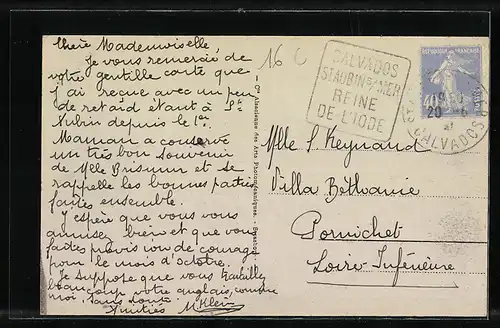 Chère Mademoiselle,
Je vous remercie de
votre gentille carte que
j'ai reçue avec un peu
de retard étant à St
Aubin depuis le 1er.
Maman a conservé
un très bon souvenir
de Mlle Brismur et se
rappelle les bonnes parties
faites ensemble.
J'espère que vous vous
amusez bien et que vous
faites provision de courage
pour le mois d'octobre.
Je suppose que vous travaillez
beaucoup votre anglais, comme
moi, sans doute.
Amitiés M Klein
Cie Alsacienne des Arts Photomécaniques.
16 C
CALVADOS
ST AUBIN S/MER
REINE
DE L'IODE
RÉPUBLIQUE FRANÇAISE
40c
20
CALVADOS
Mlle S. Reynaud
Villa Béthanie
Pornichet
Loire Inférieure